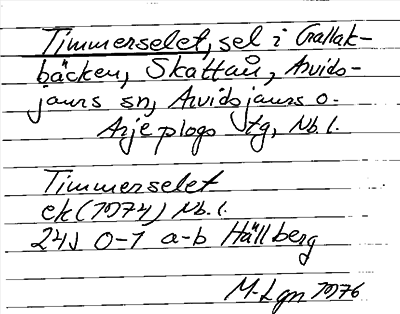 Timmerselet, sel i Grallak-
bäcken, Skattån, Arvids-
jaurs sn, Arvidsjaurs o.
Arjeplogs tg, Nb.l.
Timmerselet
ek (1974) Nb.l.
24J 0-1 a-b Hällberg
M. Lgn 1976